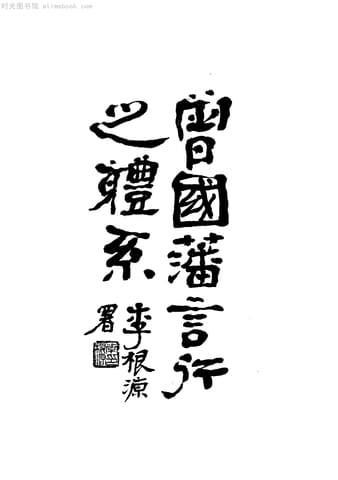 时光图书馆 - atimebook.com
曾國藩言行
之體系
李根源
署